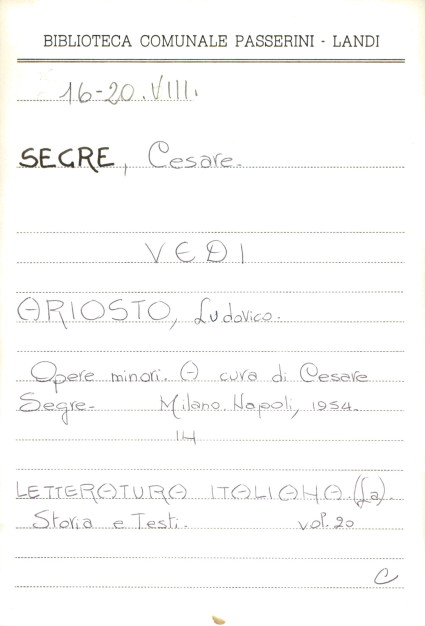 BIBLIOTECA COMUNALE PASSERINI - LANDI
16-20.VIII.
SEGRE, Cesare.
VEDI
ARIOSTO, Ludovico.
Opere minori. A cura di Cesare
Segre- Milano.Napoli, 1954.
IN
LETTERATURA ITALIANA.(La).
Storia e Testi. vol.20
C